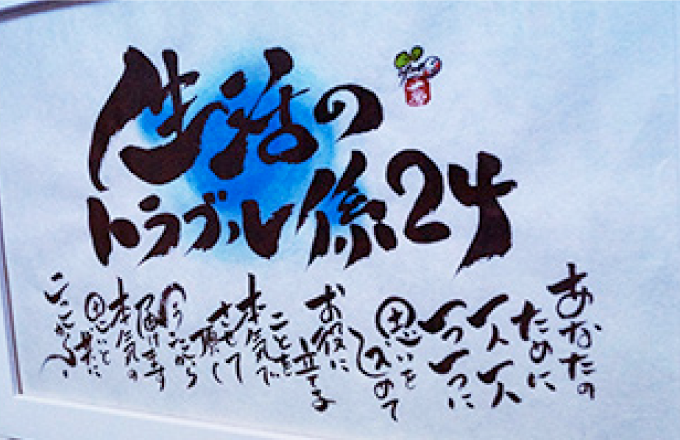 生活の
トラブル係24
あなたの
ために
一人一人
一つ一つに
思いを
込めて
お役に
立てる
ことを
本気で
させて
頂く
心うたがら
届けます
本気の
思いと共に
ここから〜